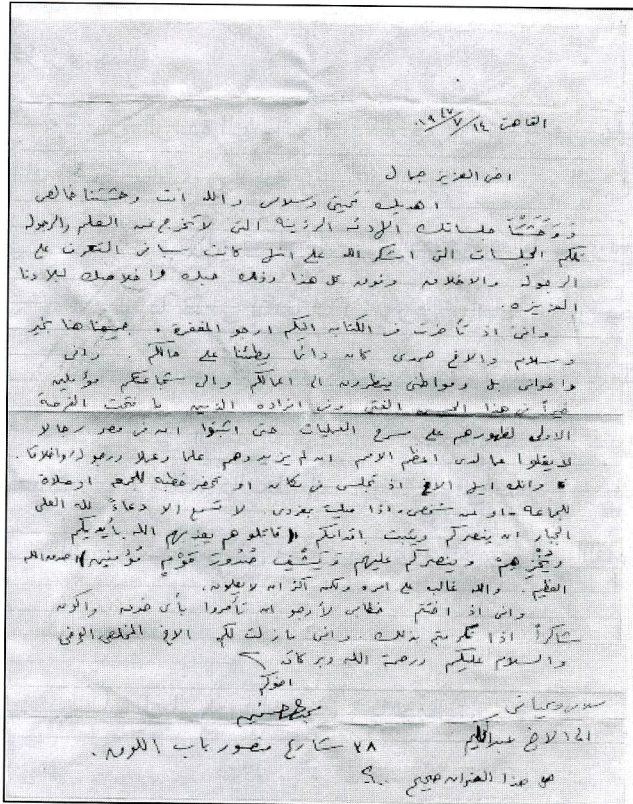 القاهرة ١٤/٧/١٩٤٧
اخى العزيز جمال
اهديك تحيتى وسلامى والله انت وحشتنا خالص
ووحشتنا جلساتك الهادئة الرزينة التى لا تخرج عن العلم والرجولة
تلكم الجلسات التى اشكر الله على انها كانت سبباً فى التعرف على
الرجولة والاخلاق وفوق كل هذا وذلك حبك واخلاصك لبلادنا
العزيزه.
وانى اذ تأخرت فى الكتابه اليكم ارجو المغفرة. جميعنا هنا بخير
وسلام والاخ حمدى كان دائماً يطمئنا على حالكم. وانى
واخوانى بل ومواطنى ينظرون الى اعمالكم والى شجاعتكم مؤملين
خيراً فى هذا الجيش الفتى وفى افراده الذين ما فتحت الفرصة
الاولى لظهورهم على مسرح العمليات حتى اثبتوا ان فى مصر رجالا
لا يقلوا عما لدى اعظم الامم ان لم يزيدوهم علما وعملا ورجولة واخلاقا.
وانك ايها الاخ اذ تجلس فى مكان او تحضر خطبه للجمعه او صلاة
للجماعة او عند شخص واذا صليت بمفردى. لا تسمع الا دعاءً لله العلى
الجبار ان ينصركم ويثبت اقدامكم (قاتلوهم يعذبهم الله بأيديكم
ويُخْزِهِمْ وينصركم عليهم وَيَشْفِ صُدُورَ قَوْمٍ مُؤْمِنِين) صدق الله
العظيم. والله غالب على امره ولكن اكثر الناس لا يعلمون.
وانى اذ اختتم خطابى لأرجو ان تأمروا بأى خدمه واكون
شاكراً اذا تكرمتم بذلك. وانى ما زلت لكم الاخ المخلص الوفى
والسلام عليكم ورحمة الله وبركاته
اخوكم
سلامى وتحياتى
الى الاخ عبدالحكيم
٣٨ شارع منصور باب اللوق.
هل هذا العنوان صحيح ؟